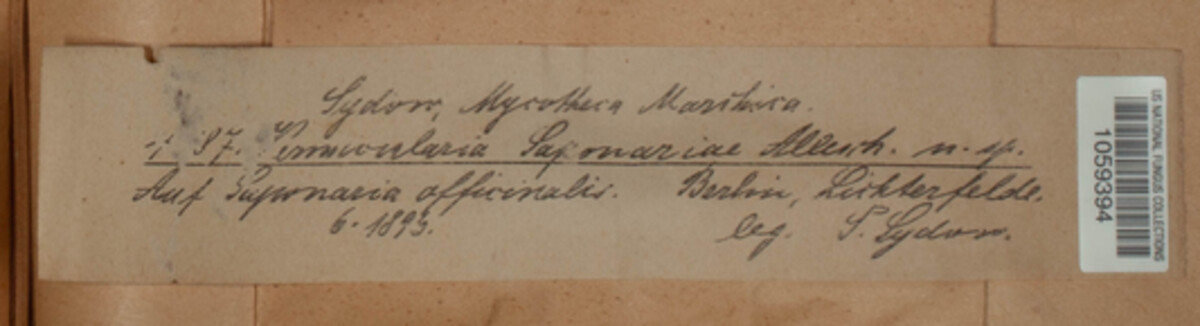 Sydow, Mycotheca Marchica.
87. Vermicularia Saponariae Allesch. n. sp.
Auf Saponaria officinalis. Berlin, Lichterfelde.
6. 1893. leg. P. Sydow.
US NATIONAL FUNGUS COLLECTIONS
1059394